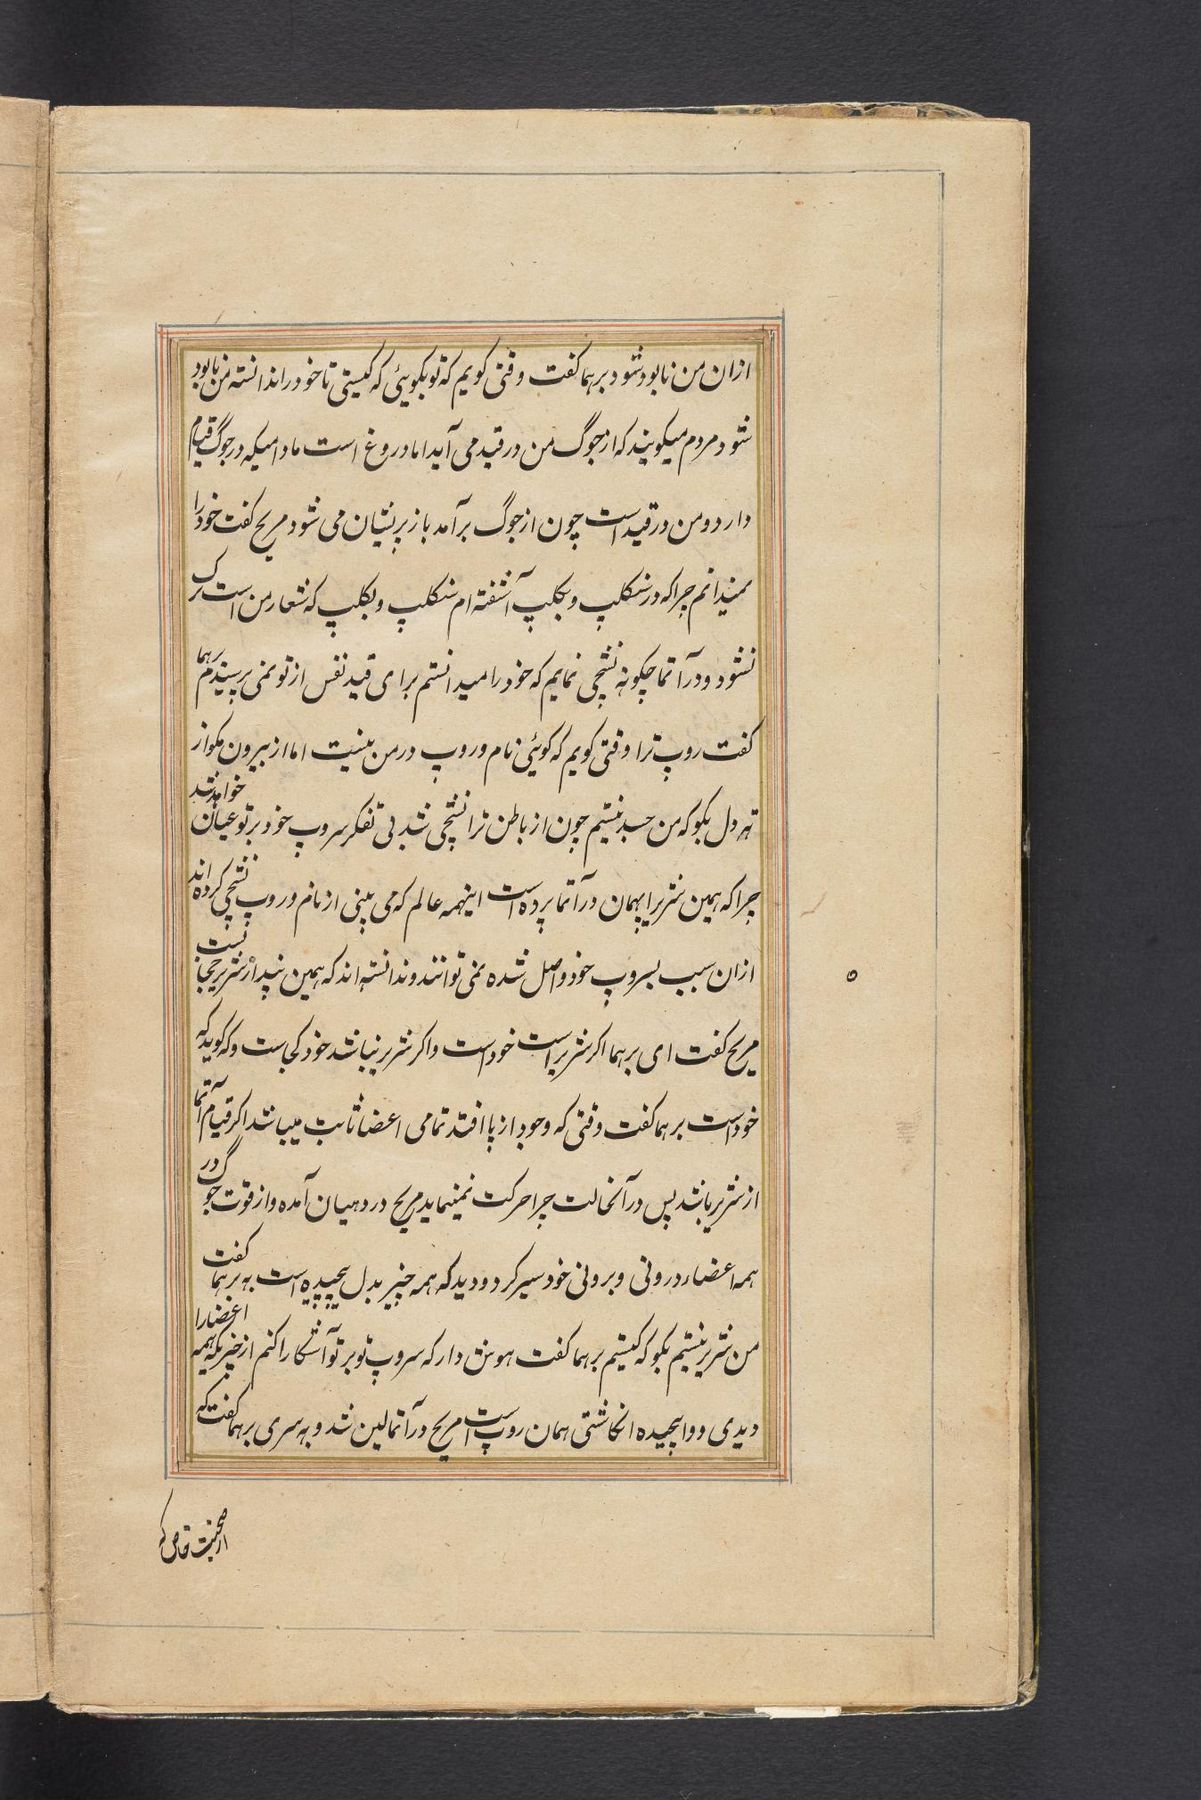 ازان من نابود شود برهما کفت وقتی کویم که تو بکویئی که کیستی تا خود را ندانسته من نابود
شود مردم میکویند که از جوگ من در قید می آید اما دروغ است مادامیکه در جوگ قیام
دارد و من در قید است چون از جوگ برآمد باز پریشان می شود مریح کفت خود را
نمیدانم چرا که در سنکلپ و بکلپ آشفته ام سنکلپ و بکلپ که شعار من است ترک
نشود و در آتما چکونه نشچی نمایم که خود را میدانستم برای قید نفس از تو نمی پرسیدم برهما
کفت روپ ترا وقتی کویم که کویئی نام و روپ در من نیست اما از بیرون مکو از
ته دل بکو که من جسد نیستم چون از باطن ترا نشچی شد بی تفکر سروپ خود بر تو عیان خواهد شد
چرا که همین شریر ابهمان در آتما پرده است اینهمه عالم که می بینی از نام و روپ نشچی کرده اند
ازان سبب بسروپ خود واصل شده نمی توانند و ندانسته اند که همین پندار شریر حجابست
مریح کفت ای برهما اکر شریر است خود است و اکر شریر نباشد خود کجاست و که کوید که
خود است برهما کفت وقتی که وجود از پا افتد تمامی اعضا ثابت میباشد اکر قیام آتما
از شریر باشد پس در آنحالت چرا حرکت نمینماید مریح در دهیان آمده و از قوت جوگ در
همه اعضاء درونی و برونی خود سیر کرد و دید که همه چیز بدل پیچیده است به برهما کفت
من شریر نیستم بکو که کیستم برهما کفت هوش دار که سروپ تو بر تو آشکارا کنم از چیزیکه همه اعضا را
دیدی و واپیچیده انکاشتی همان روپ است مریح در آتما لین شد و به سری برهما کفت که
از صحبت خاصی که